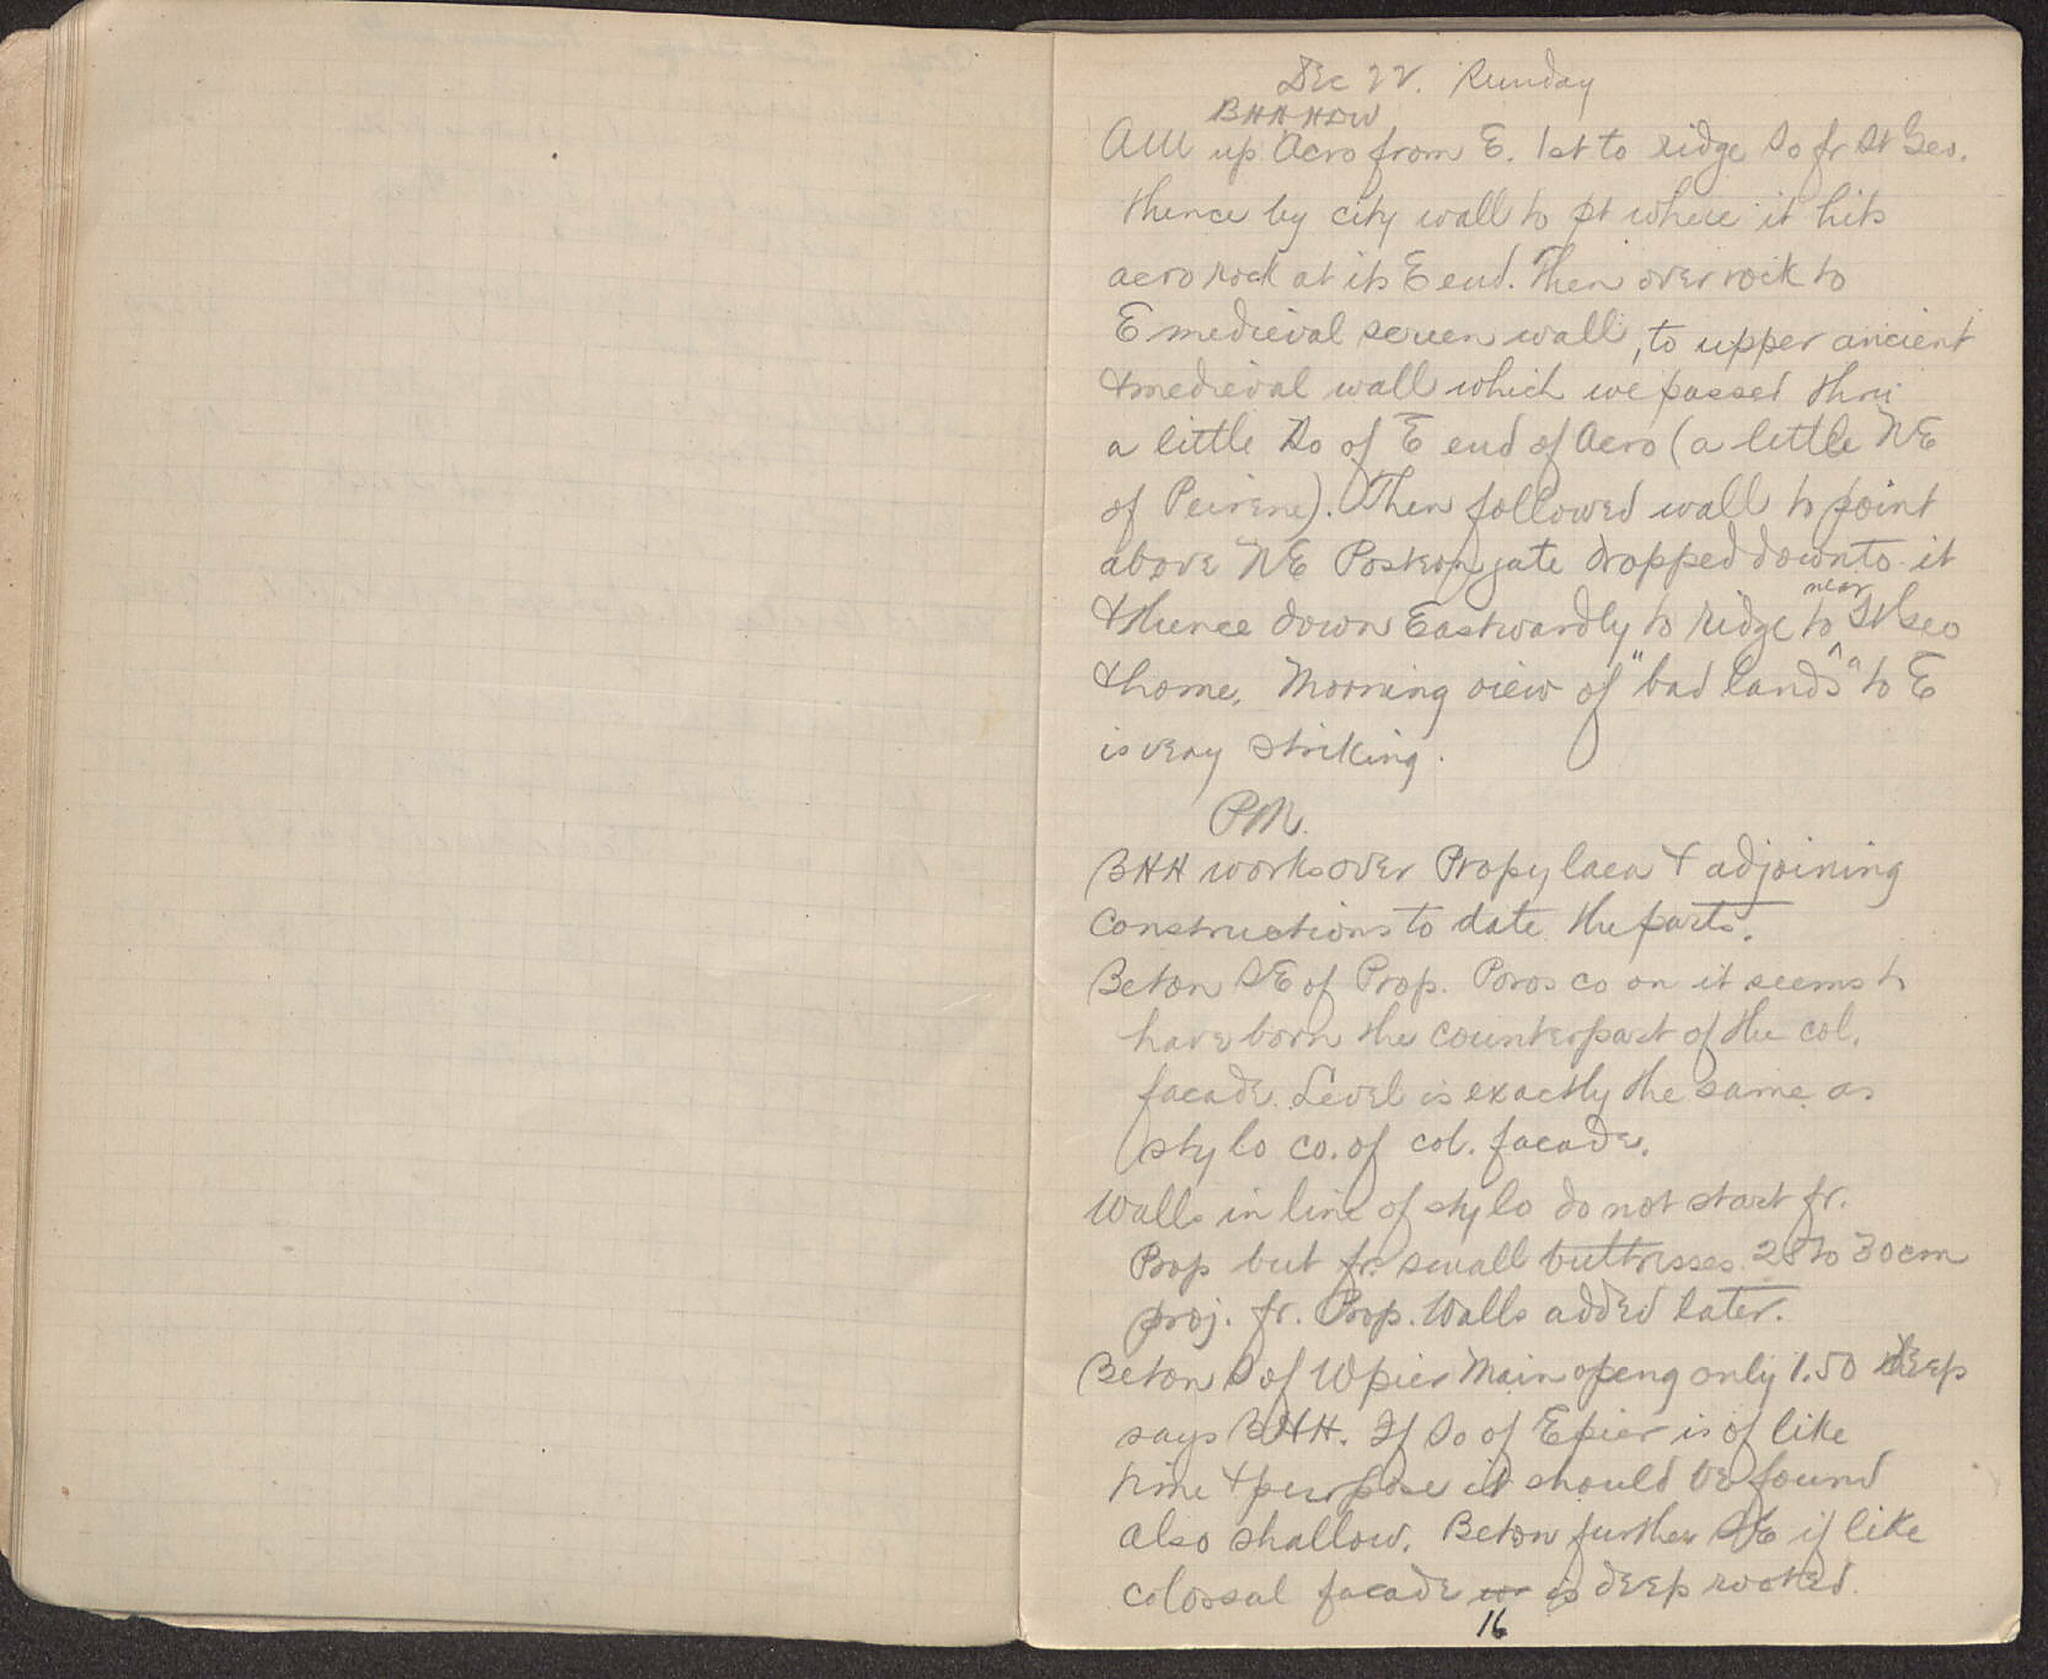 Dec 22. Sunday
BHH HDW
All up Acro from E. 1st to ridge So fr St Geo.
thence by city wall to pt where it hits
acro rock at its E end. Then over rock to
E medieval screen wall, to upper ancient
+ medieval wall which we passed thru
a little So of E end of Acro (a little NE
of Peirene). Then followed wall to point
above NE Postern gate dropped down to it
+ thence down Eastwardly to ridge to near St Geo
+ home. Morning view of "bad lands" to E
is very striking.
PM.
BHH works over Propylaea + adjoining
constructions to date the parts.
Beton SE of Prop. Poros co on it seems to
have born the counterpart of the col.
facade. Level is exactly the same as
stylo co. of col. facade.
Walls in line of stylo do not start fr.
Prop but fr. small buttresses 28 to 30 cm
proj. fr. Prop. Walls added later.
Beton S of W pier Main openg only 1.50 deep
says BHH. If So of E pier is of like
time + purpose it should be found
also shallow. Beton further SE if like
colossal facade is deep rooted.
16